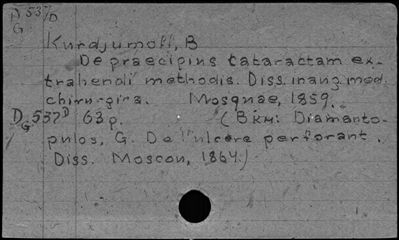 D 537D
G
Kurdjumoff, B
De praecipius cataractam ex-
trahendi methodis. Diss. inaug med.
chirurgica. Mosquae, 1859.
D G 537 D 63p. (Вкм: Diamanto-
pulos, G. De l'ulcere perforant.
Diss. Moscou, 1864.)